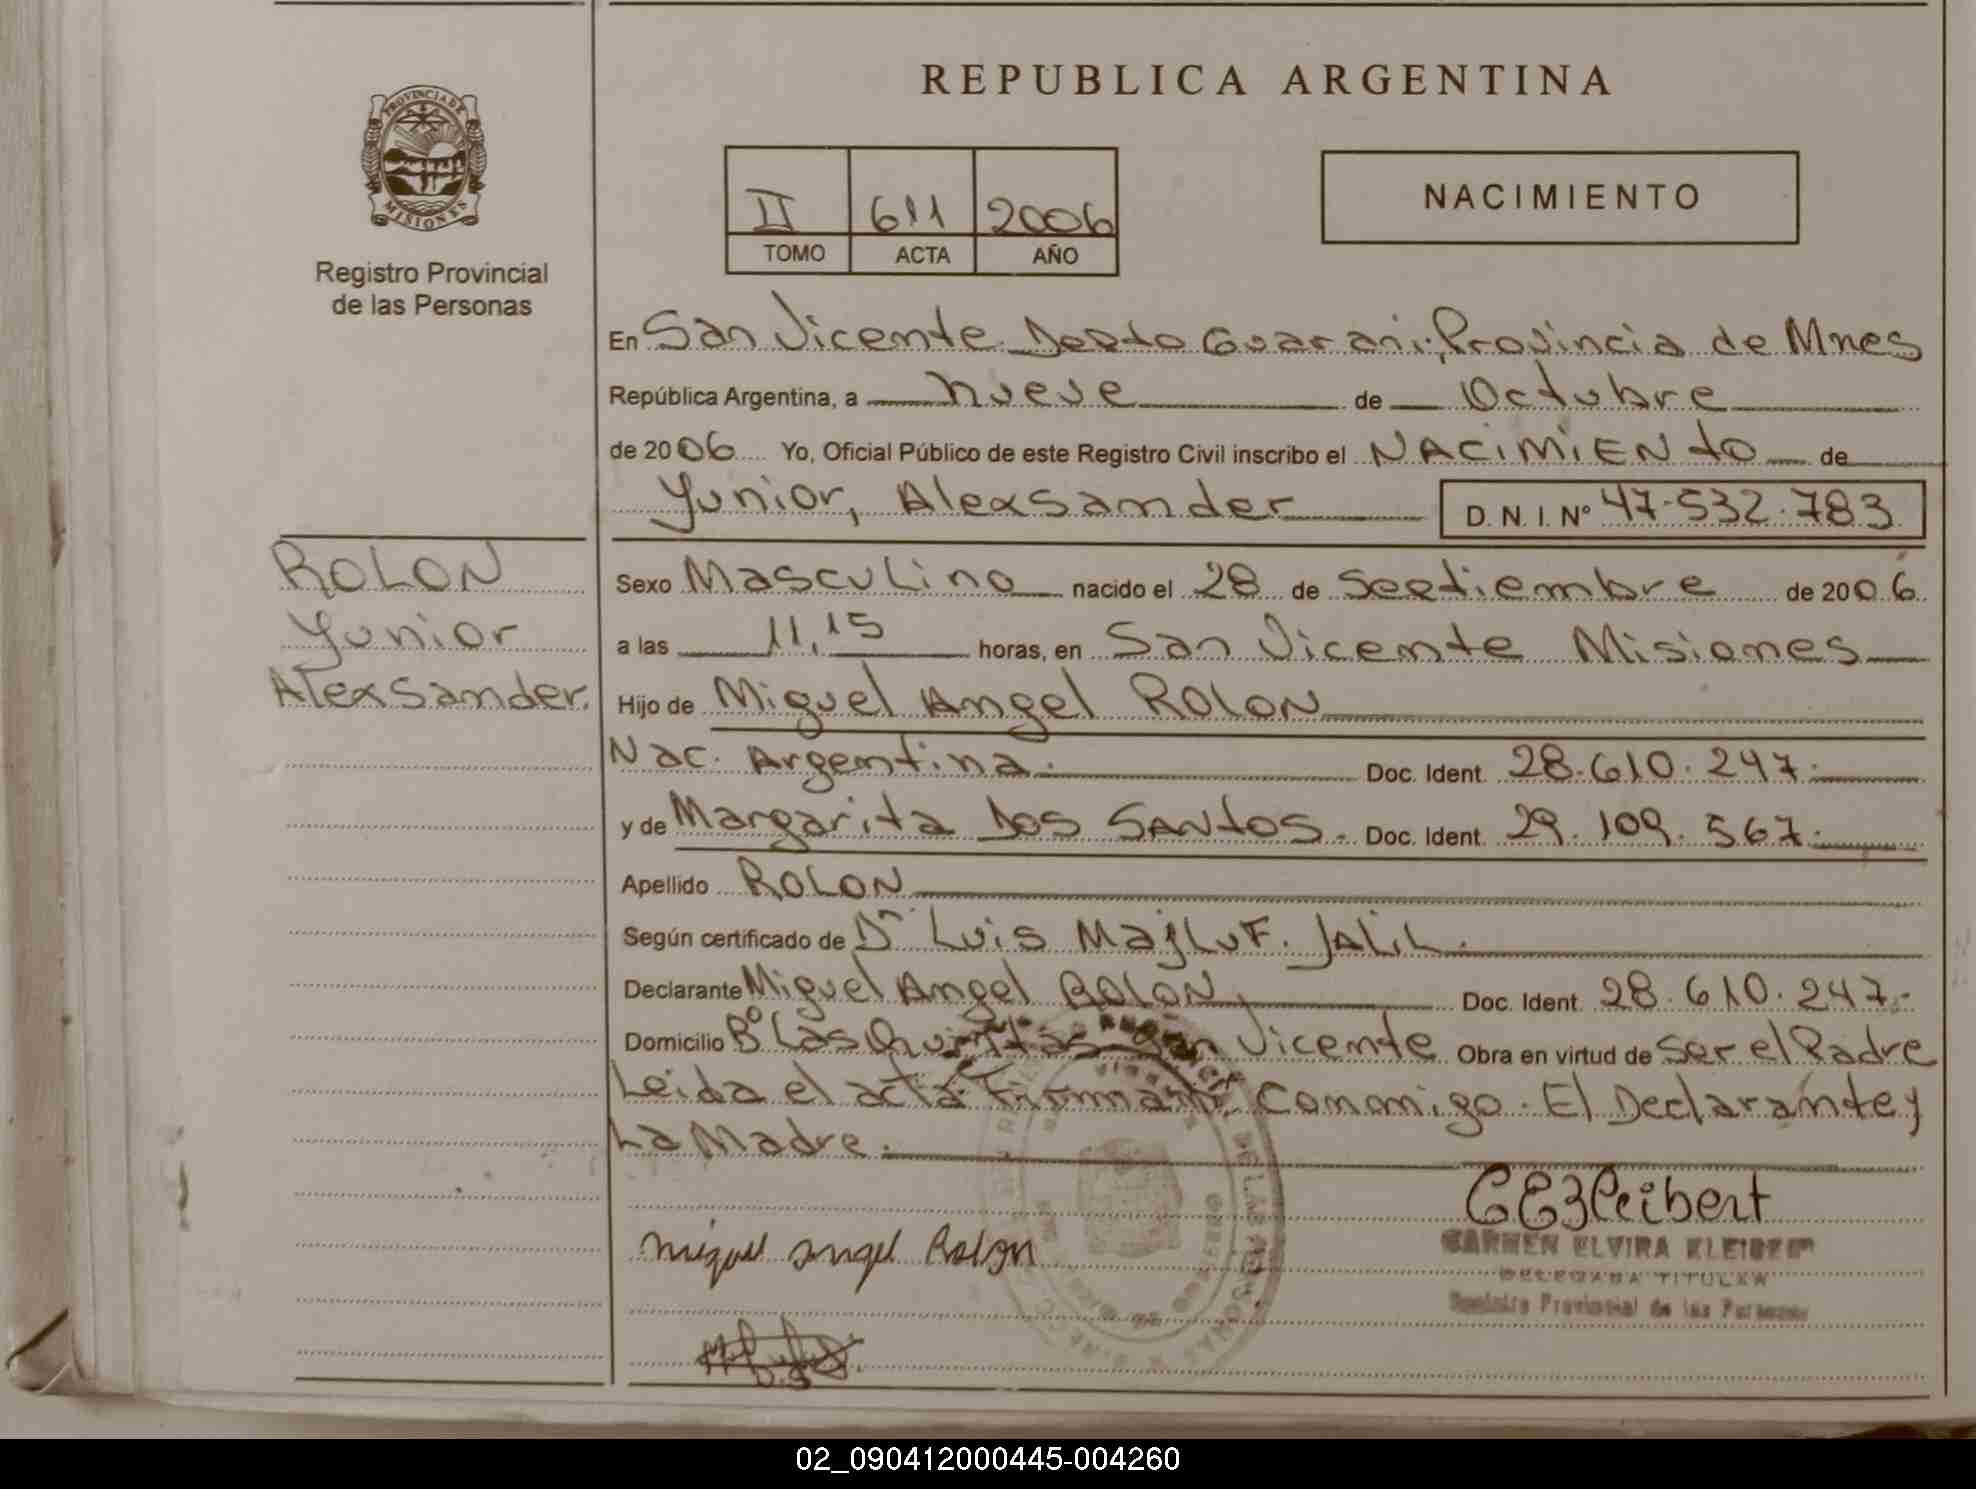 PROVINCIA DE
MISIONES
Registro Provincial
de las Personas
REPUBLICA ARGENTINA
II 611 2006
TOMO ACTA AÑO
NACIMIENTO
En San Vicente Depto Guarani, Provincia de Mnes
República Argentina, a nueve de Octubre
de 2006 Yo, Oficial Público de este Registro Civil inscribo el NACIMIENTO de
Yunior, Alexsander D. N. I. Nº 47.532.783
ROLON
Yunior
Alexsander.
Sexo Masculino nacido el 28 de Septiembre de 2006
a las 11,15 horas, en San Vicente Misiones
Hijo de Miguel Angel ROLON
Nac. Argentina. Doc. Ident. 28.610.247.
y de Margarita Dos SANtOS. Doc. Ident. 29.109.567.
Apellido ROLON
Según certificado de Dr Luis MajLuF. JALiL.
Declarante Miguel Angel ROLON, Doc. Ident. 28.610.247.
Domicilio Bº Las Quintas San Vicente Obra en virtud de Ser el Padre
Leida el acta Firman Conmigo. El Declarante y
La Madre.
CEKleibert
CARMEN ELVIRA KLEIBERT
DELEGADA TITULAR
Registro Provincial de las Personas
Miguel angel Rolon
02_090412000445-004260